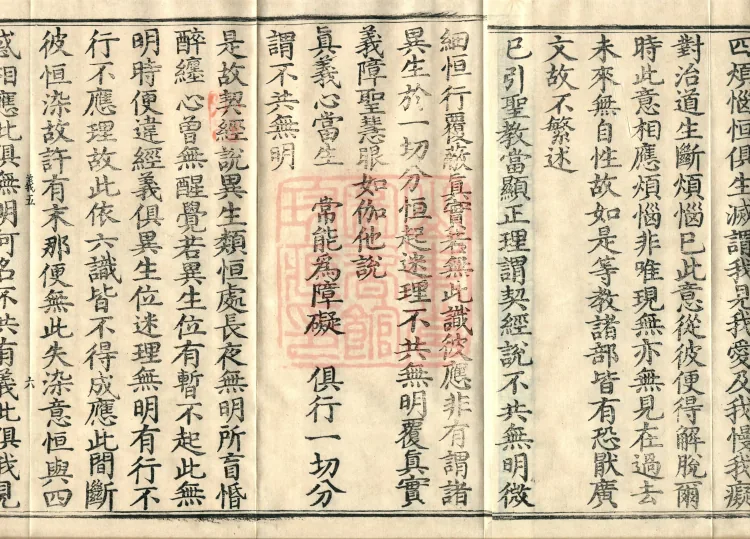 四煩惱恒俱生滅謂我見我愛及我慢我癡
對治道生斷煩惱已此意從彼便得解脫爾
時此意相應煩惱非唯現無亦無見在過去
未來無自性故如是等教諸部皆有恐厭廣
文故不繁述
已引聖教當顯正理謂契經說不共無明微
細恒行覆蔽真實若無此識彼應非有謂諸
異生於一切分恒起迷理不共無明覆真實
義障聖慧眼如伽他說
真義心當生　常能為障礙　俱行一切分
謂不共無明
是故契經說異生類恒處長夜無明所盲惛
醉纏心曾無醒覺若異生位有暫不起此無
明時便違經義俱異生位迷理無明有行不
行不應理故此依六識皆不得成應此間斷
彼恒染故許有末那便無此失染意恒與四
義五　六
惑相應此俱無明何名不共有義此俱我見